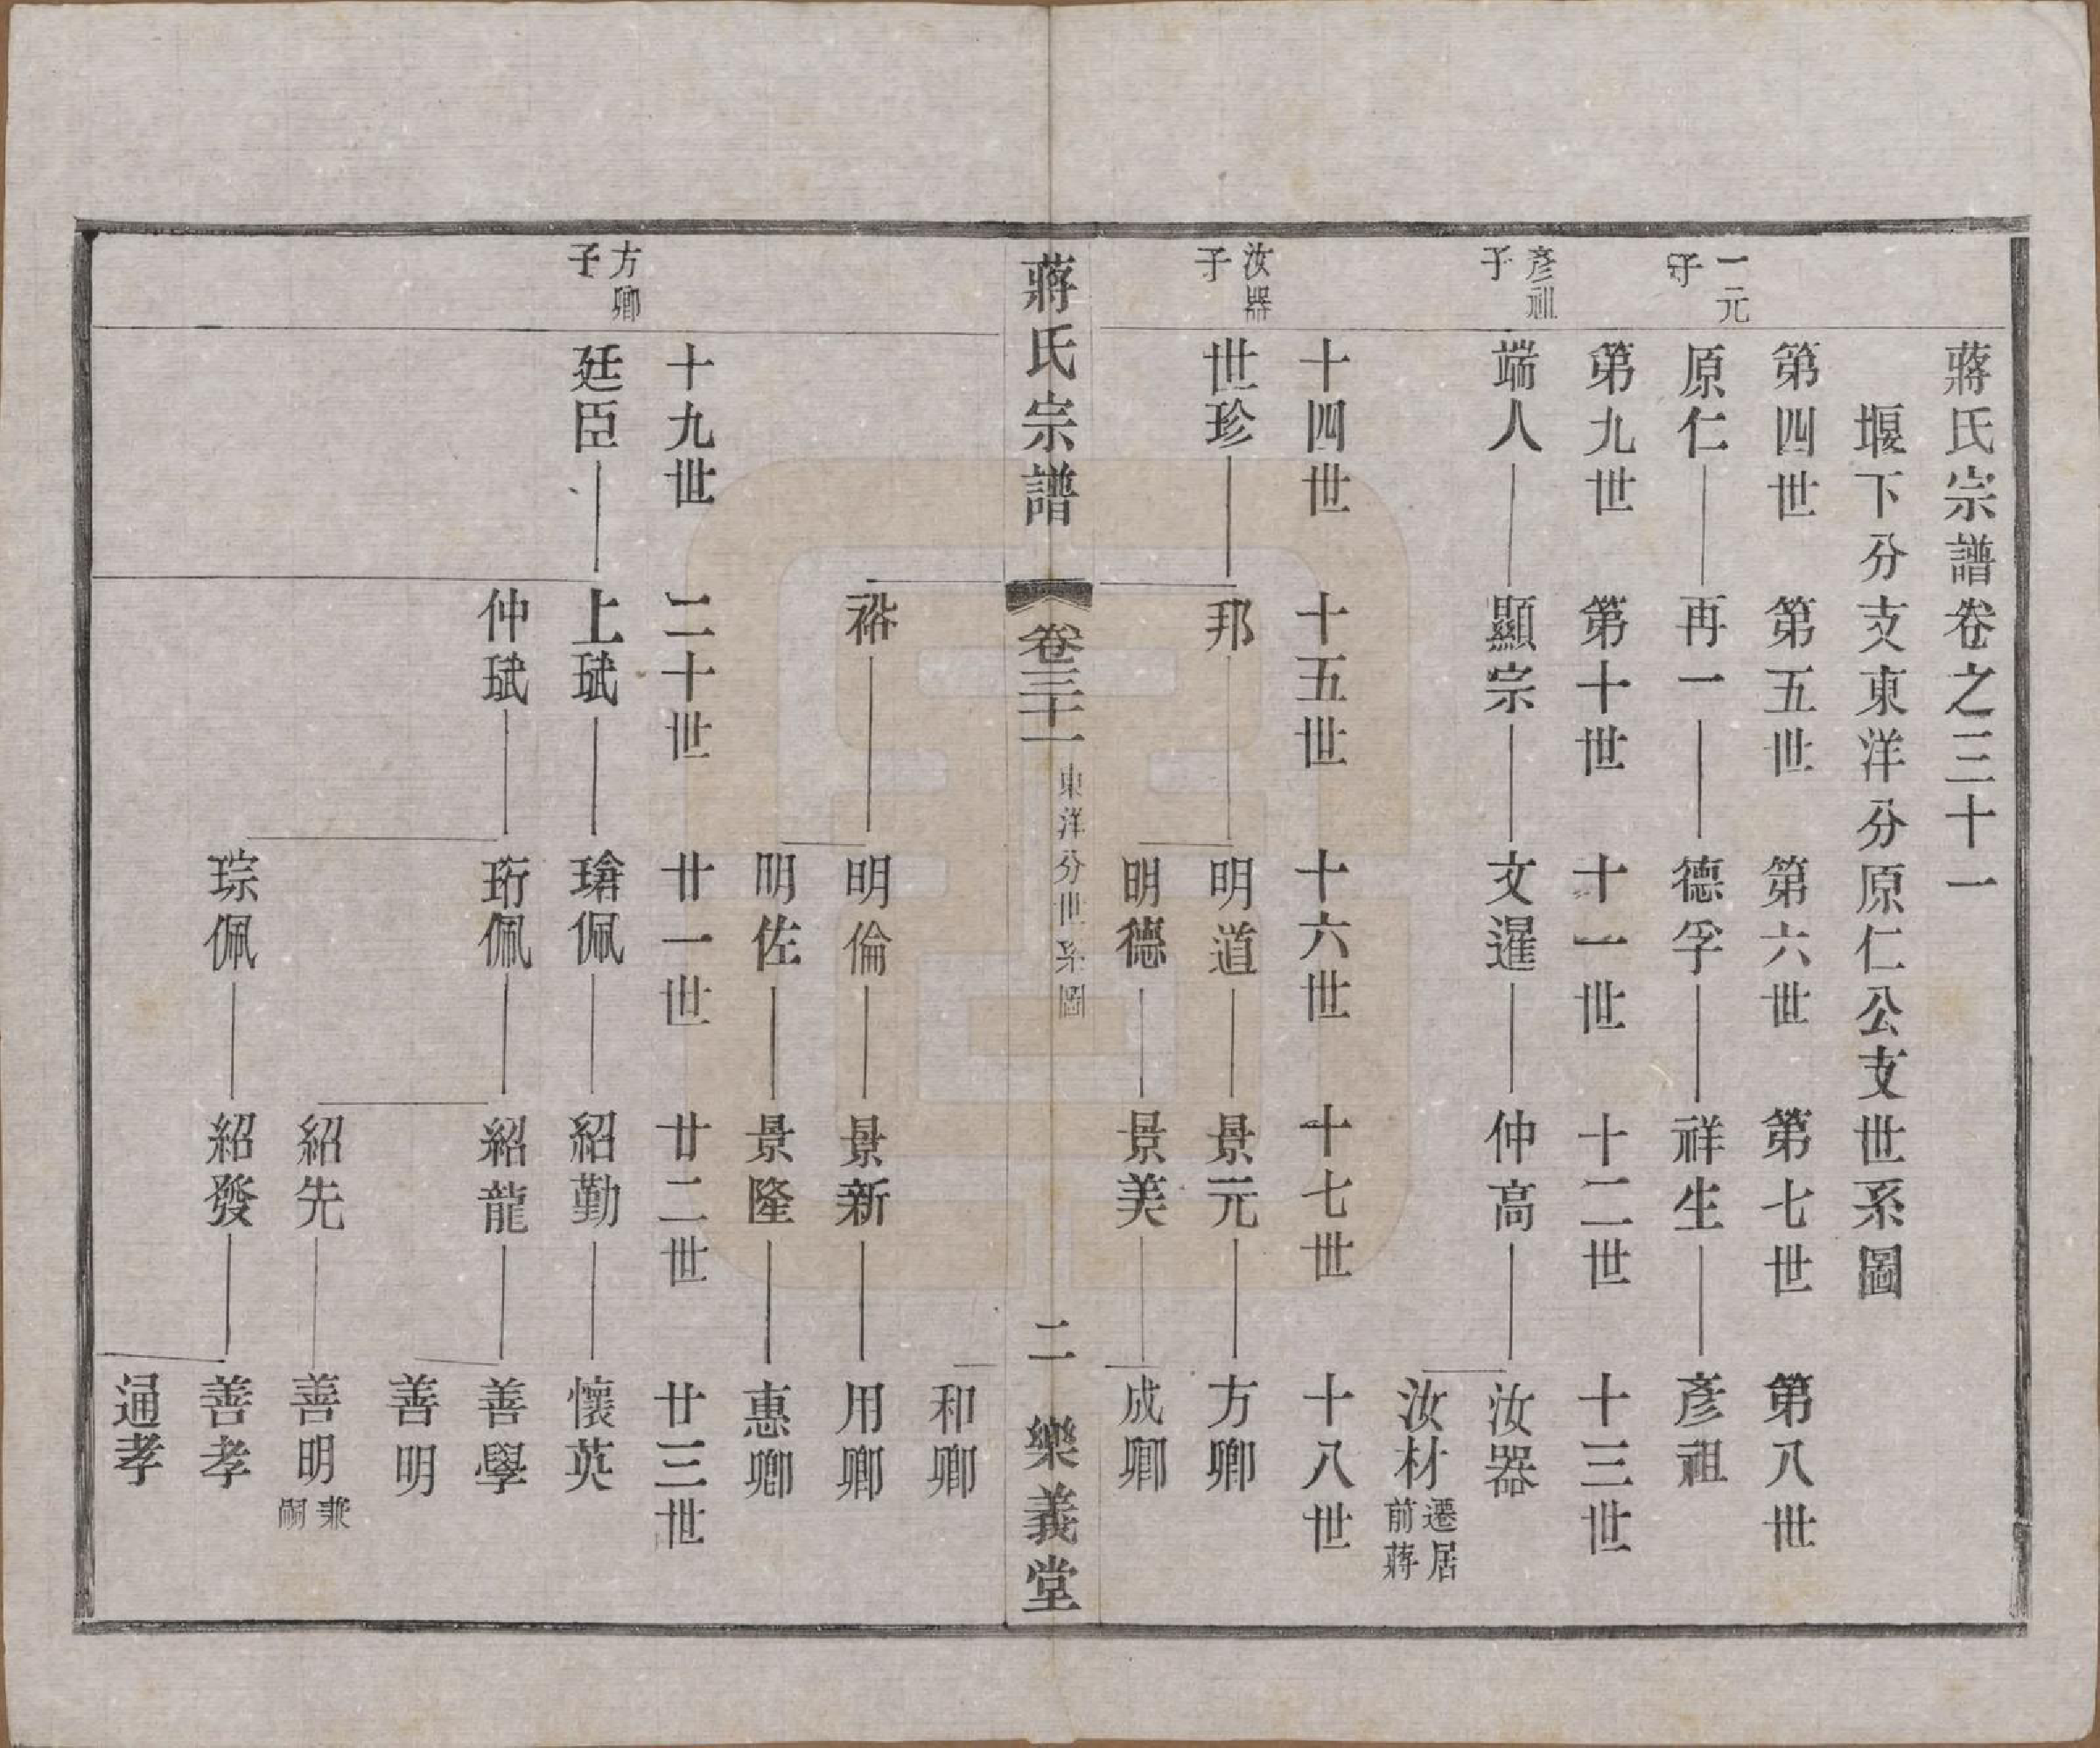 蔣氏宗譜卷之三十一
堰下分支東洋分原仁公支世系圖
第四世 第五世 第六世 第七世 第八世
一元
子
原仁 再一 德孚 祥生 彥祖
第九世 第十世 十一世 十二世 十三世
彥祖
子
端人 顯宗 文暹 仲高 汝器
汝材 遷居
前蔣
十四世 十五世 十六世 十七世 十八世
汝器
子
世珍 邦 明道 景元 方卿
明德 景美 成卿
蔣氏宗譜 卷三十一 東洋分世系圖 二 樂義堂
和卿
裕 明倫 景新 用卿
明佐 景隆 惠卿
十九世 二十世 廿一世 廿二世 廿三世
方卿
子
廷臣 上珷 瑲佩 紹勤 懷英
仲珷 珩佩 紹龍 善學
善明
紹先 善明 兼
嗣
琮佩 紹發 善孝
通孝